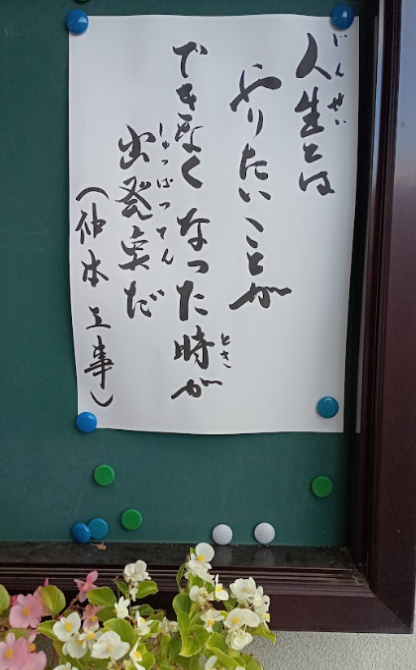 人生とは
じんせい
やりたいことが
できなくなった時が
とき
出発点だ
しゅっぱつてん
(仲本工事)